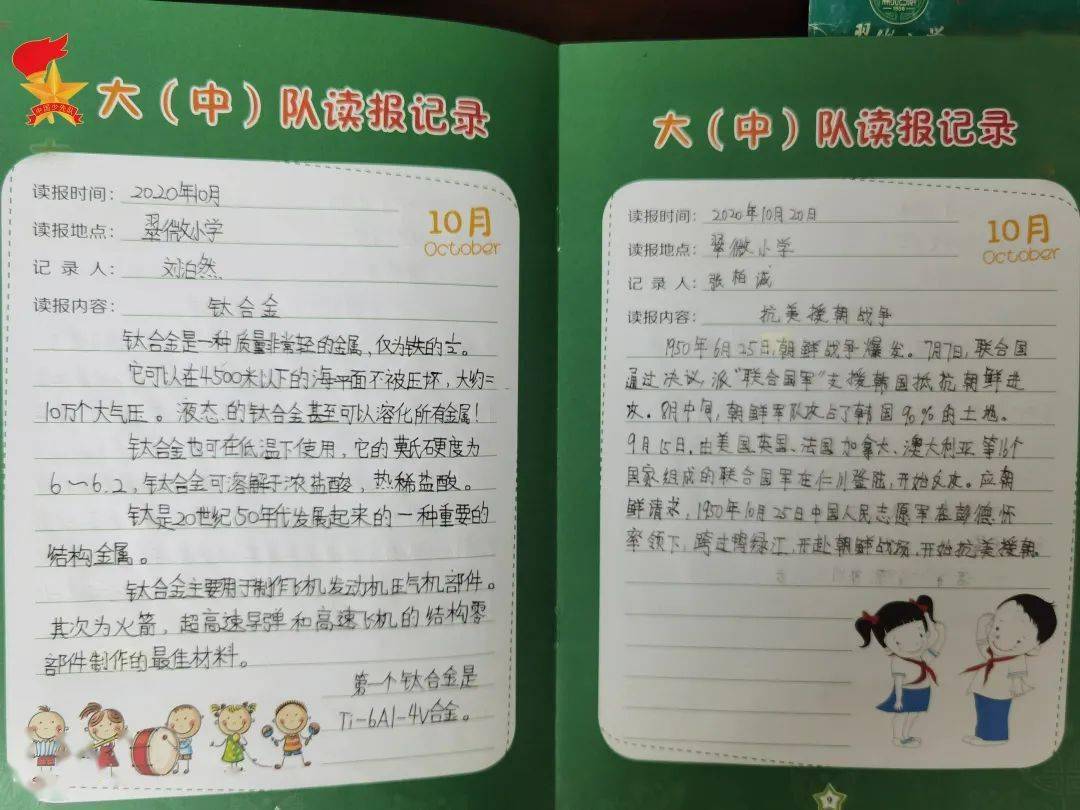 翠微小学
中国少先队
大（中）队读报记录
读报时间：2020年10月
读报地点：翠微小学
记录人：刘泊然
10月
October
读报内容：钛合金
钛合金是一种质量非常轻的金属，仅为铁的½。
它可以在4500米以下的海平面不被压坏，大约三
10万个大气压。液态的钛合金甚至可以溶化所有金属！
钛合金也可在低温下使用，它的莫氏硬度为
6～6.2，钛合金可溶解于浓盐酸，热稀盐酸。
钛是20世纪50年代发展起来的一种重要的
结构金属。
钛合金主要用于制作飞机发动机压气机部件。
其次为火箭，超高速导弹和高速飞机的结构零
部件制作的最佳材料。
第一个钛合金是
Ti-6Al-4V合金。
大（中）队读报记录
读报时间：2020年10月20日
读报地点：翠微小学
记录人：张柏诚
10月
October
读报内容：抗美援朝战争
1950年6月25日，朝鲜战争爆发。7月7日，联合国
通过决议，派“联合国军”支援韩国抵抗朝鲜进
攻。8月中旬，朝鲜军队攻占了韩国90%的土地。
9月15日，由美国、英国、法国、加拿大、澳大利亚等16个
国家组成的联合国军在仁川登陆，开始反攻。应朝
鲜请求，1950年10月25日中国人民志愿军在彭德怀
率领下，跨过鸭绿江，开赴朝鲜战场，开始抗美援朝。
9